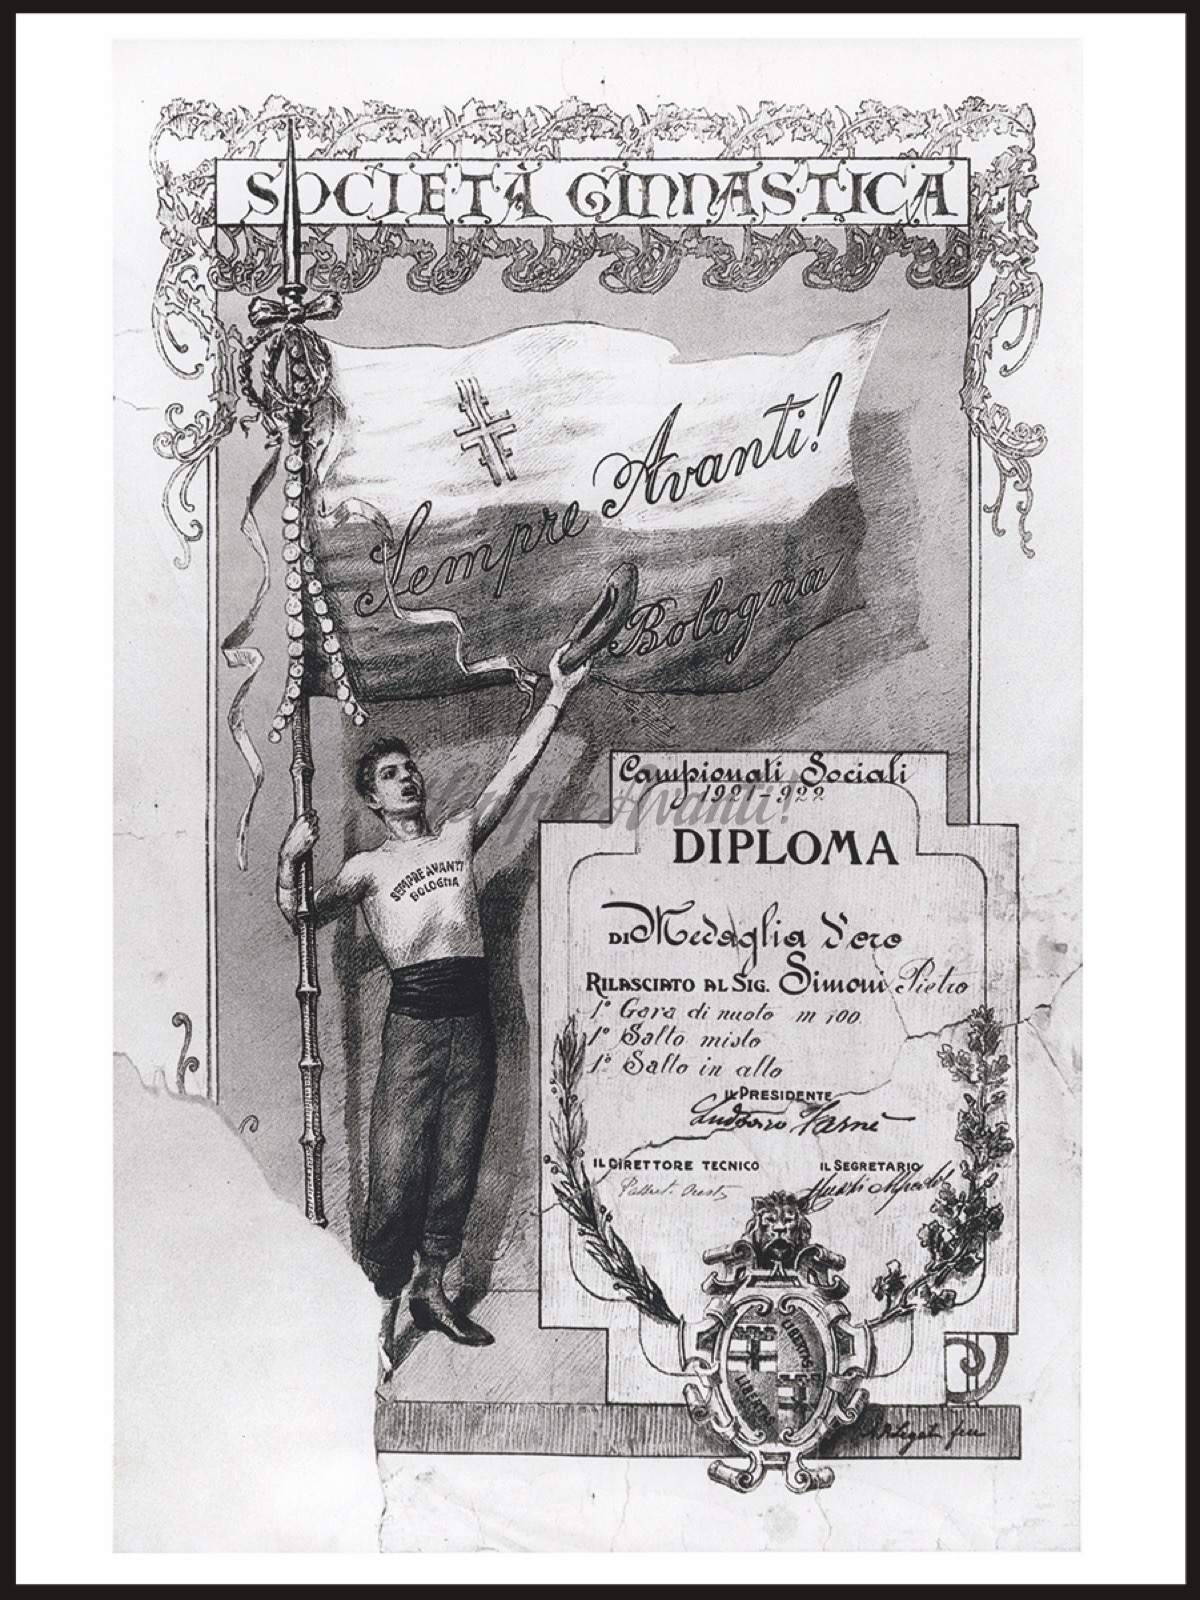 SOCIETÀ GINNASTICA
Sempre Avanti!
Bologna
SEMPRE AVANTI
BOLOGNA
Campionati Sociali
1921-922
Sempre Avanti!
DIPLOMA
DI Medaglia d'oro
RILASCIATO AL SIG. Simoni Pietro
1° Gara di nuoto m 100
1° Salto misto
1° Salto in alto
IL PRESIDENTE
Ludovico Farnè
IL DIRETTORE TECNICO IL SEGRETARIO
LIBERTAS
LIBERTAS